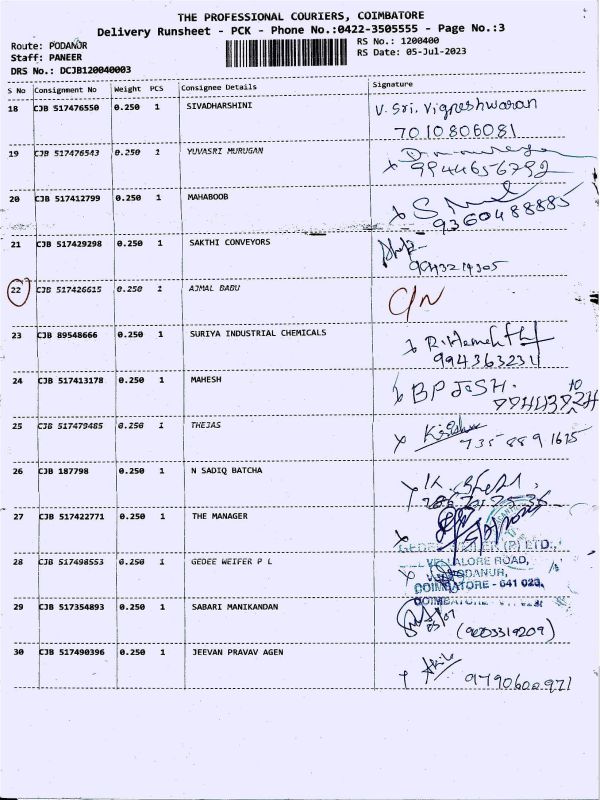 THE PROFESSIONAL COURIERS, COIMBATORE
Delivery Runsheet - PCK - Phone No.:0422-3505555 - Page No.:3
Route: PODANUR RS No.: 1200400
Staff: PANEER RS Date: 05-Jul-2023
DRS No.: DCJB120040003
S No Consignment No Weight PCS Consignee Details Signature
18 CJB 517476550 0.250 1 SIVADHARSHINI V. Sri. Vigneshwaran
7010806081
19 CJB 517476543 0.250 1 YUVASRI MURUGAN
9944656792
20 CJB 517412799 0.250 1 MAHABOOB
9360488885
21 CJB 517429298 0.250 1 SAKTHI CONVEYORS
9943214305
22 CJB 517426615 0.250 1 AJMAL BABU
23 CJB 89548666 0.250 1 SURIYA INDUSTRIAL CHEMICALS
994363231
24 CJB 517413178 0.250 1 MAHESH
25 CJB 517479485 0.250 1 THEJAS
735 889 1615
26 CJB 187798 0.250 1 N SADIQ BATCHA
27 CJB 517422771 0.250 1 THE MANAGER
(P) LTD.,
28 CJB 517498553 0.250 1 GEDEE WEIFER P L
VELLALORE ROAD,
PODANUR,
COIMBATORE - 641 023.
29 CJB 517354893 0.250 1 SABARI MANIKANDAN
30 CJB 517490396 0.250 1 JEEVAN PRAVAV AGEN
9790600971